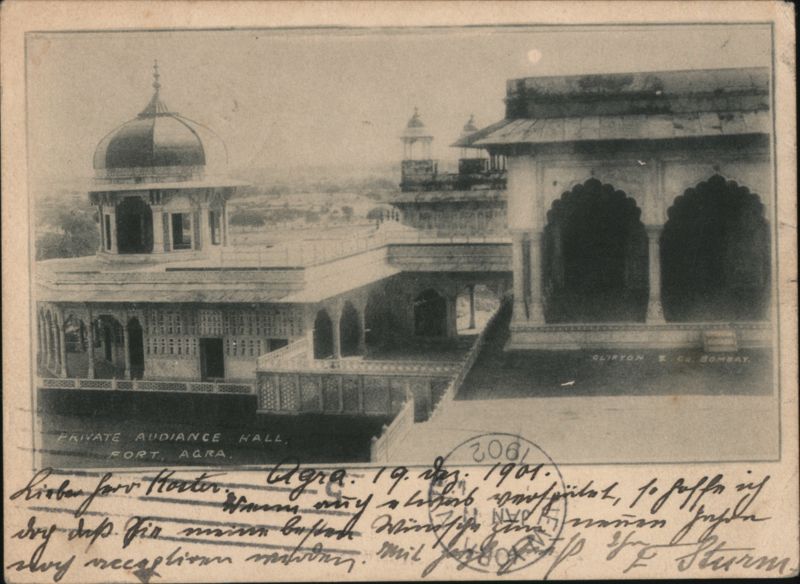 CLIFTON & CO. BOMBAY.
PRIVATE AUDIANCE HALL.
FORT, AGRA.
Agra. 19. Dez. 1901.
Lieber Herr Koster,
Wenn auch etwas verspätet, so hoffe ich
doch daß Sie meine besten Wünsche zum neuen Jahre
noch acceptieren werden. Mit
Ihr E Sturm.
NEW YORK
JAN
1902